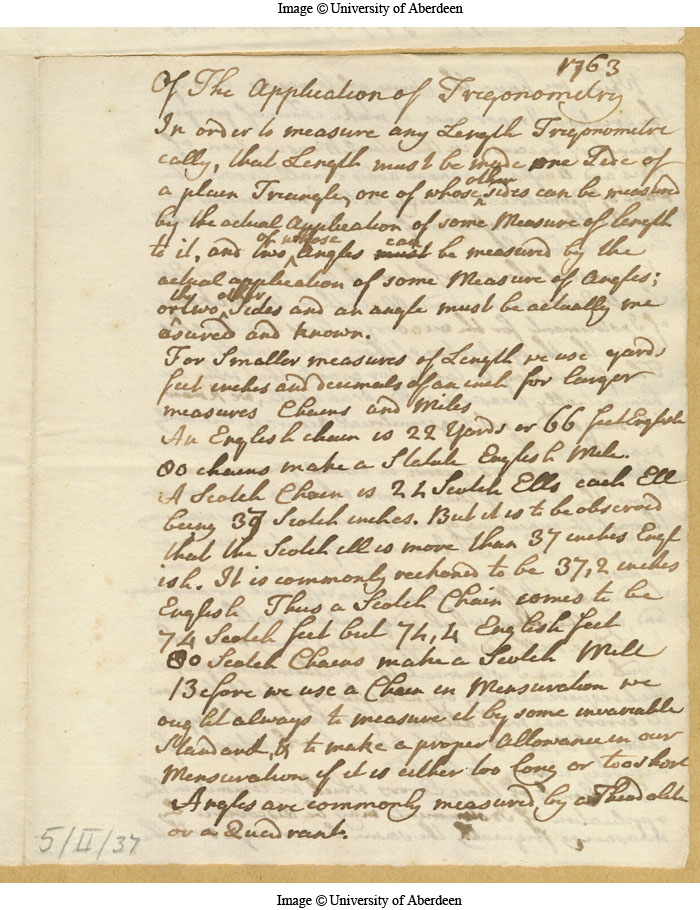 Image © University of Aberdeen
1763
Of The Application of Trigonometry
In order to measure any Length Trigonometri
cally, that Length must be made one Side of
a plain Triangle, one of whose other sides can be measured
by the actual Application of some Measure of length
to it, and two of whose Angles can must be measured by the
actual application of some Measure of Angles;
or two the other Sides and an angle must be actually me
asured and known.
For Smaller measures of Length we use yards
feet inches and decimals of an inch for larger
measures Chains and Miles
An English chain is 22 Yards or 66 feet English
80 chains make a Statute English Mile.
A Scotch Chain is 24 Scotch Ells each Ell
being 37 Scotch inches. But it is to be observed
that the Scotch ell is more than 37 inches Engl
ish. It is commonly reckoned to be 37,2 inches
English Thus a Scotch Chain comes to be
74 Scotch feet but 74,4 English feet
80 Scotch Chains make a Scotch Mile
Before we use a Chain in Mensuration we
ought always to measure it by some invariable
Standard, & to make a proper Allowance in our
Mensuration if it is either too long or too short
Angles are commonly measured by a Theodolite
or a Quadrant.
5/II/37
Image © University of Aberdeen